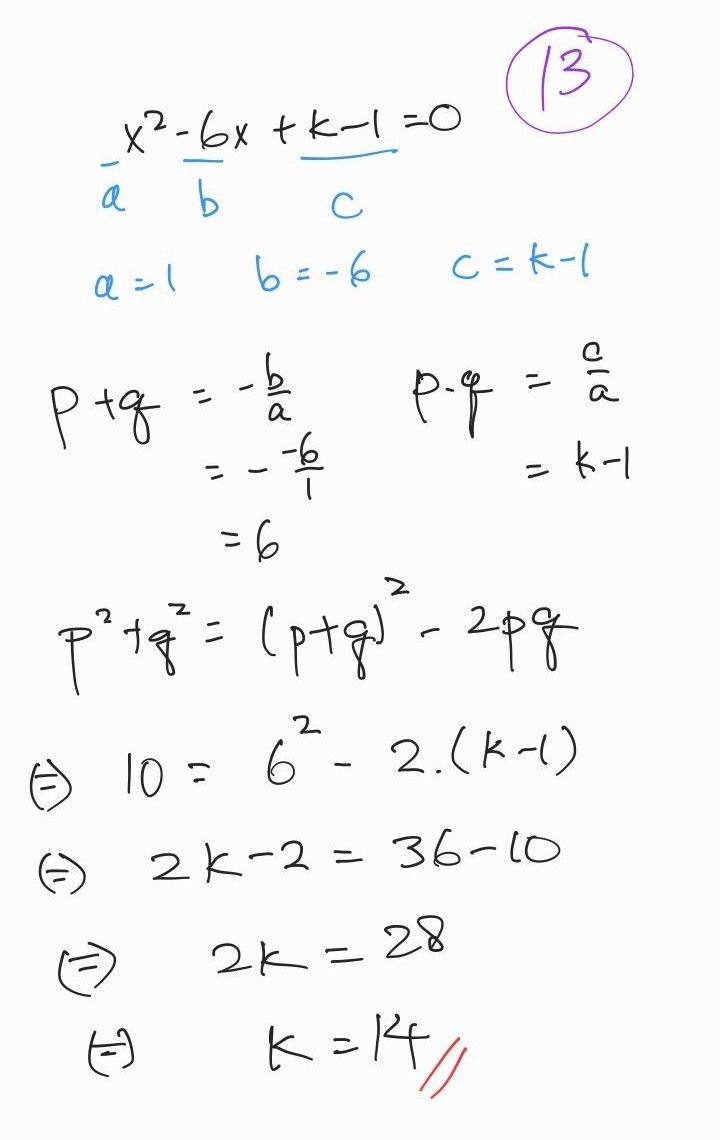 13
x² - 6x + k-1 = 0
a b c
a = 1 b = -6 c = k-1
p+q = - b/a p.q = c/a
= - -6/1 = k-1
= 6
p² + q² = (p+q)² - 2pq
⇔ 10 = 6² - 2.(k-1)
⇔ 2k-2 = 36-10
⇔ 2k = 28
⇔ k = 14 //